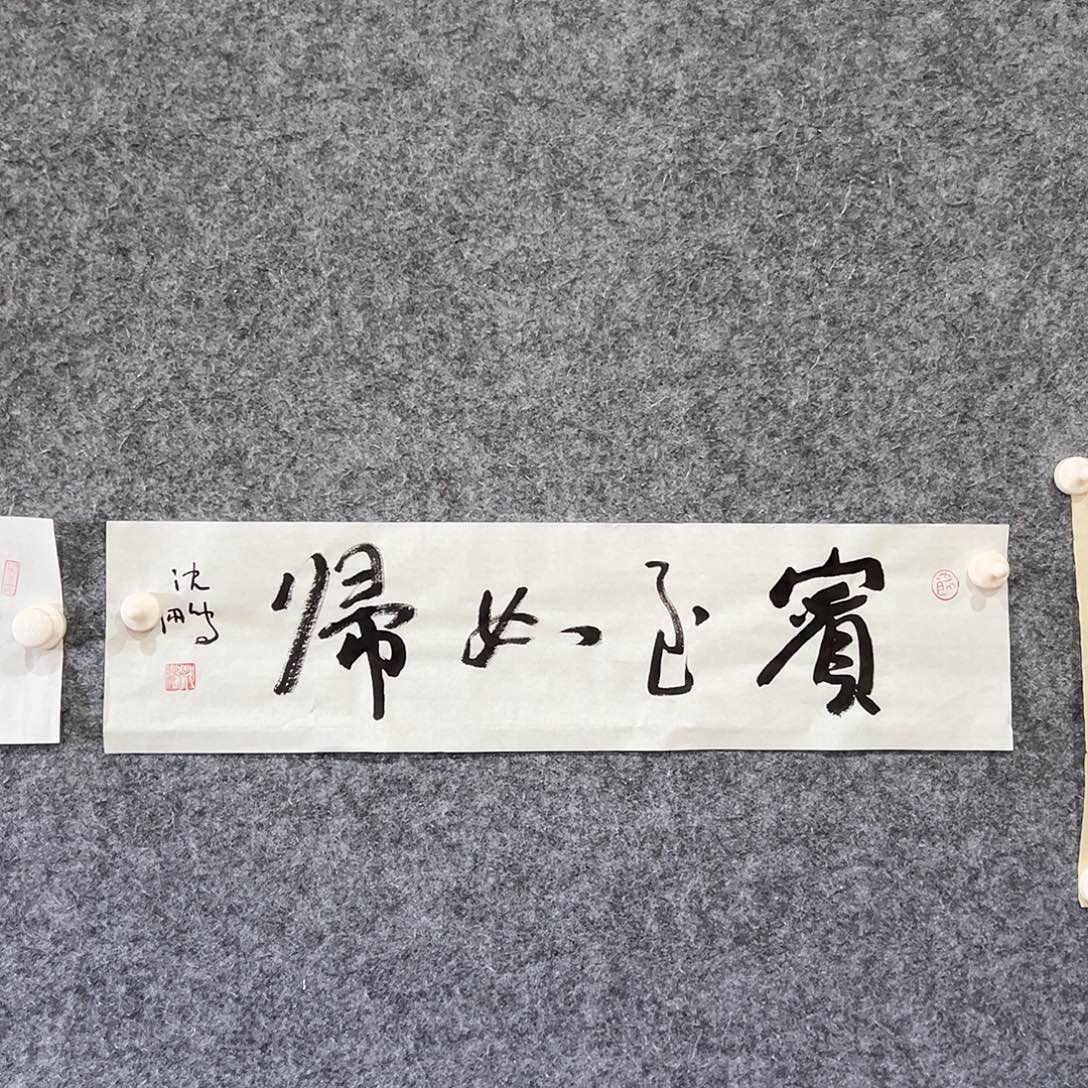 賓至如歸
沈鵬